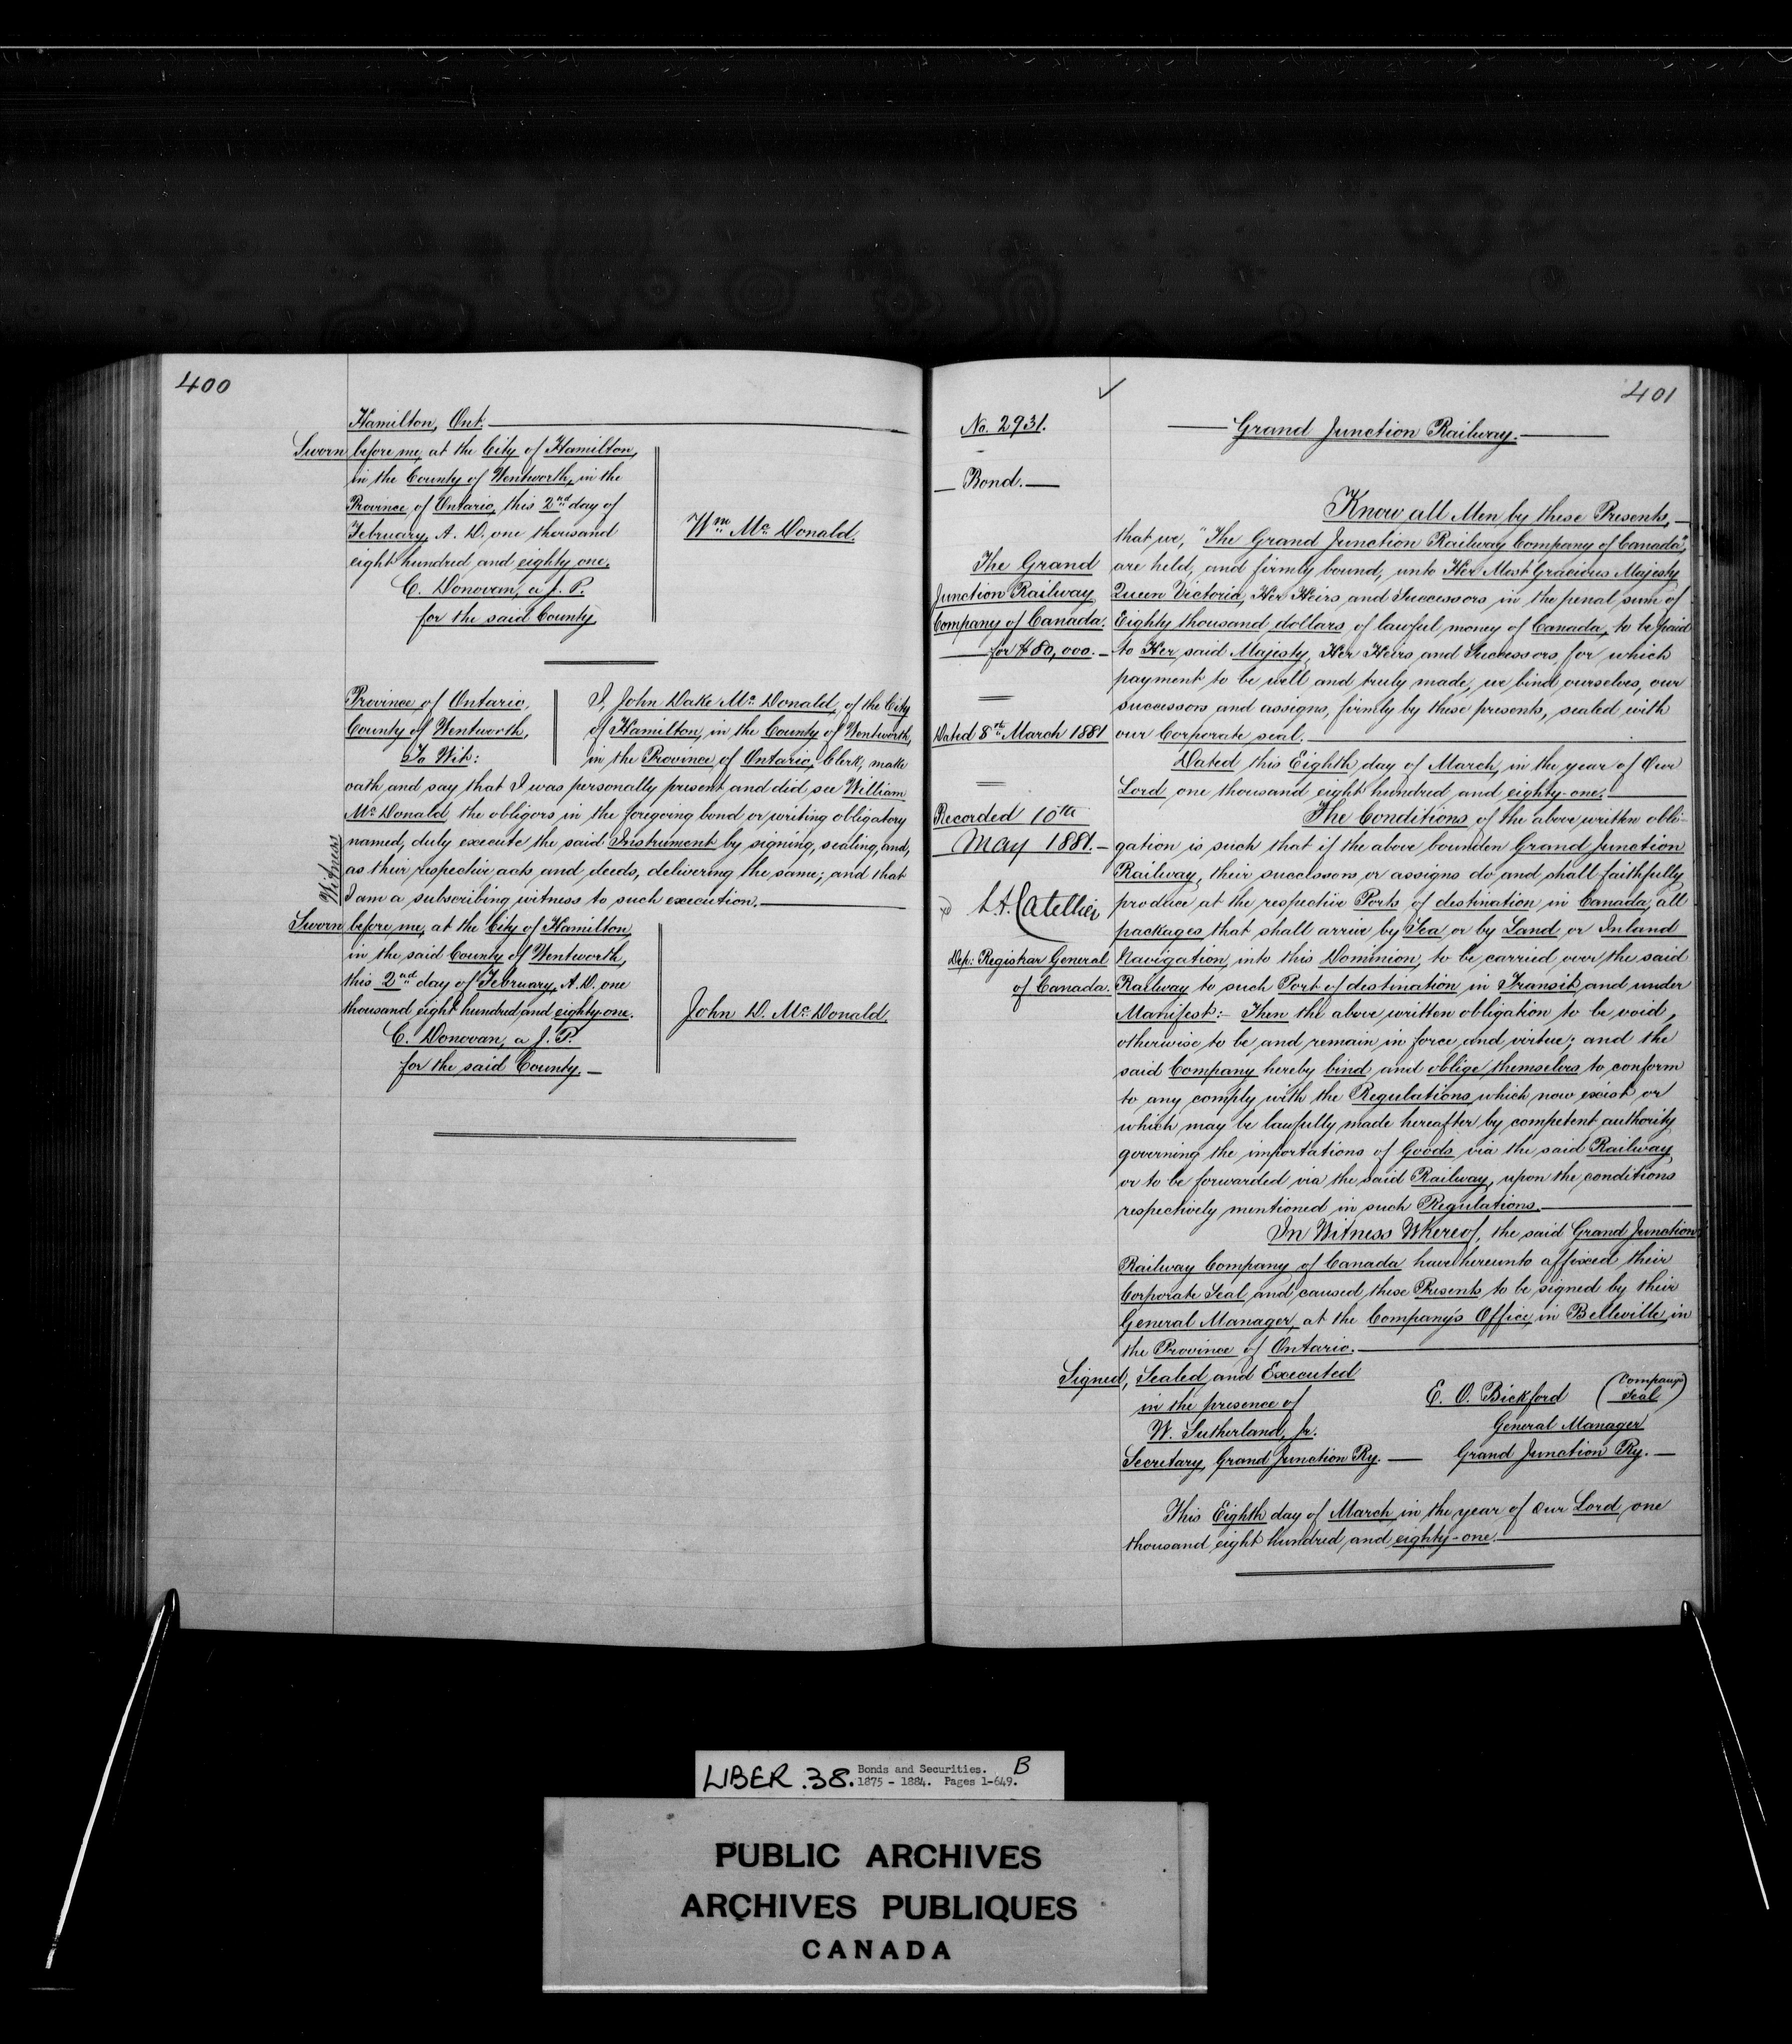 400
Hamilton, Ont.
Sworn before me, at the City of Hamilton,
in the County of Wentworth, in the
Province of Ontario, this 2nd day of
February, A. D. one thousand
eight hundred and eighty one.
C. Donovan, a J. P.
for the said County.
Wm Mc Donald.
Province of Ontario,
County of Wentworth,
To Wit:
I, John Dake Mc Donald, of the City
of Hamilton, in the County of Wentworth,
in the Province of Ontario, Clerk, make
oath and say that I was personally present and did see William
Mc Donald the obligors in the foregoing bond or writing obligatory
named, duly execute the said Instrument by signing, sealing, and,
as their respective acts and deeds, delivering the same; and that
I am a subscribing witness to such execution.
Witness
Sworn before me, at the City of Hamilton
in the said County of Wentworth,
this 2nd day of February, A. D. one
thousand eight hundred and eighty-one.
C. Donovan, a J. P.
for the said County.
John D. Mc Donald.
401
No. 2931.
Bond.
The Grand
Junction Railway
Company of Canada.
for $80,000.
Dated 8th March 1881
Recorded 10th
May 1881.
L. A. Catellier
Dep: Registrar General
of Canada.
Grand Junction Railway.
Know all Men by these Presents,
that we, "The Grand Junction Railway Company of Canada",
are held, and firmly bound, unto Her Most Gracious Majesty
Queen Victoria, Her Heirs and Successors in the penal sum of
Eighty thousand dollars of lawful money of Canada, to be paid
to Her said Majesty, Her Heirs and Successors, for which
payment to be well and truly made, we bind ourselves, our
successors and assigns, firmly by these presents, sealed with
our Corporate seal.
Dated this Eighth day of March, in the year of Our
Lord one thousand eight hundred and eighty-one.
The Conditions of the above written obli-
gation is such that if the above bounden Grand Junction
Railway, their successors or assigns do and shall faithfully
produce at the respective Ports of destination in Canada, all
packages that shall arrive by Sea, or by Land or Inland
Navigation, into this Dominion, to be carried over the said
Railway to such Port of destination in Transit and under
Manifest:- Then the above written obligation to be void,
otherwise to be and remain in force and virtue; and the
said Company hereby bind and oblige themselves to conform
to any comply with the Regulations which now exist or
which may be lawfully made hereafter by competent authority
governing the importations of Goods via the said Railway
or to be forwarded via the said Railway, upon the conditions
respectively mentioned in such Regulations.
In Witness Whereof, the said Grand Junction
Railway Company of Canada have hereunto affixed their
Corporate Seal and caused these Presents to be signed by their
General Manager, at the Company's Office, in Belleville, in
the Province of Ontario.
Signed, Sealed and Executed
in the presence of
W. Sutherland, Jr.
Secretary, Grand Junction Ry.
E. O. Bickford (Company's Seal)
General Manager
Grand Junction Ry.
This Eighth day of March in the year of Our Lord one
thousand eight hundred and eighty-one.
LIBER .38. Bonds and Securities. B
1875 - 1884. Pages 1-649.
PUBLIC ARCHIVES
ARCHIVES PUBLIQUES
CANADA